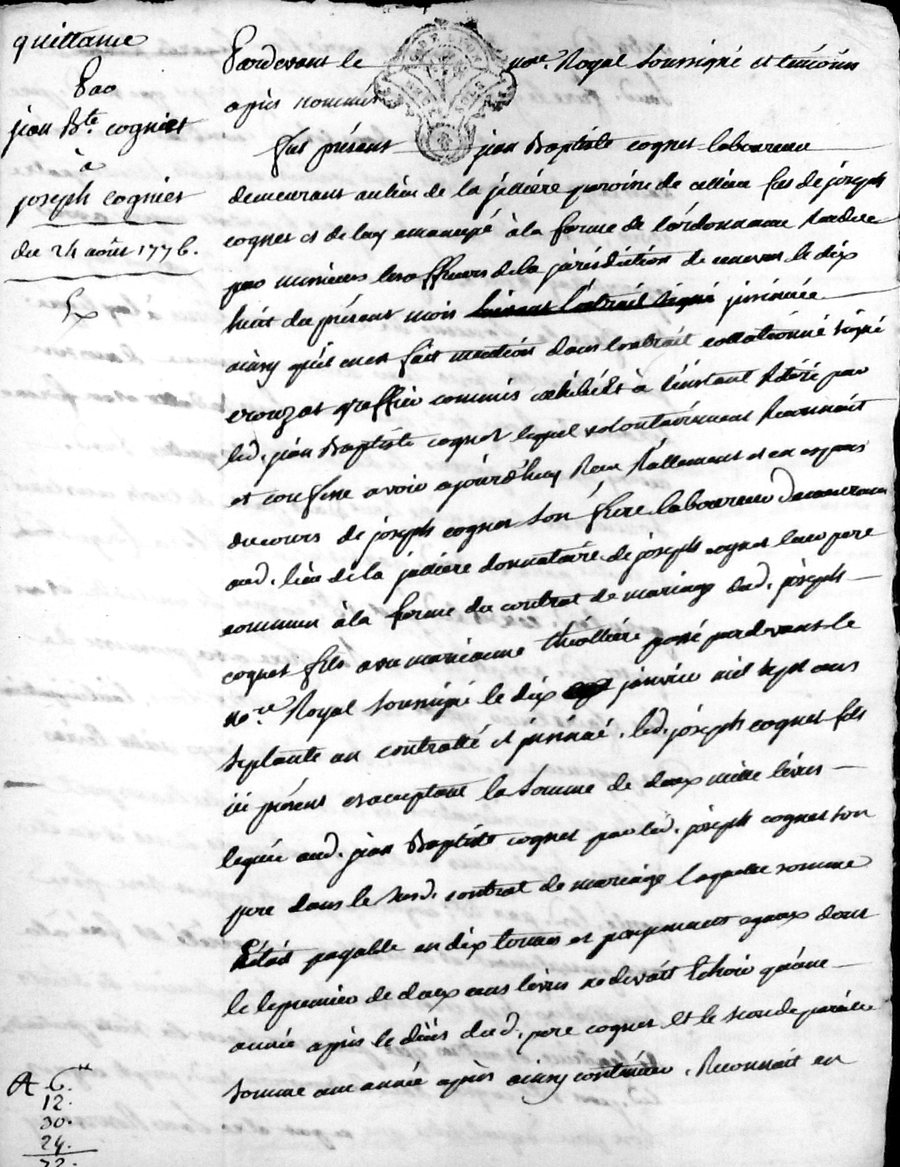 quittance
Par
jean Bte. cognet
à
joseph cognet
du 24 août 1776.
Pardevant le nore. Royal soussigné et témoins
après nommés
fut présent jean Baptiste cognet laboureur
demeurant au lieu de la paroisse de fils de joseph
cognet et de luy emancipé à la forme de l'ordonnance Rendue
par messieurs les officiers de la jurisdiction de le dix
huit du présent mois insinuée
ainsy qu'il en est fait mention dans l'extrait collationné signé
greffier commis exhibé à l'instant Retiré par
led. jean Baptiste cognet lequel volontairement Reconnait
et confesse avoir ajourd'huy Reçu Réellement et en espèces
du cours de joseph cognet son frère laboureur demeurant
aud. lieu de la donnataire de joseph cognet leur père
commun à la forme du contrat de mariage dud. joseph
cognet fils avec marianne théollière passé pardevant le
nore. Royal soussigné le dix janvier mil sept cens
septante un controllé et insinué, led. joseph cognet fils
ici présent et acceptant la somme de deux mille livres
leguée aud. jean Baptiste cognet par led. joseph cognet son
père dans le susd. contrat de mariage laquelle somme
étoit payable en dix termes et payements egaux dont
le premier de deux cens livres ne devoit Echoir qu'une
année après le décès dud. père cognet Et le second pareille
somme une année après ainsy continuer, Reconnait en
A 6.
12.
30.
24.
72.